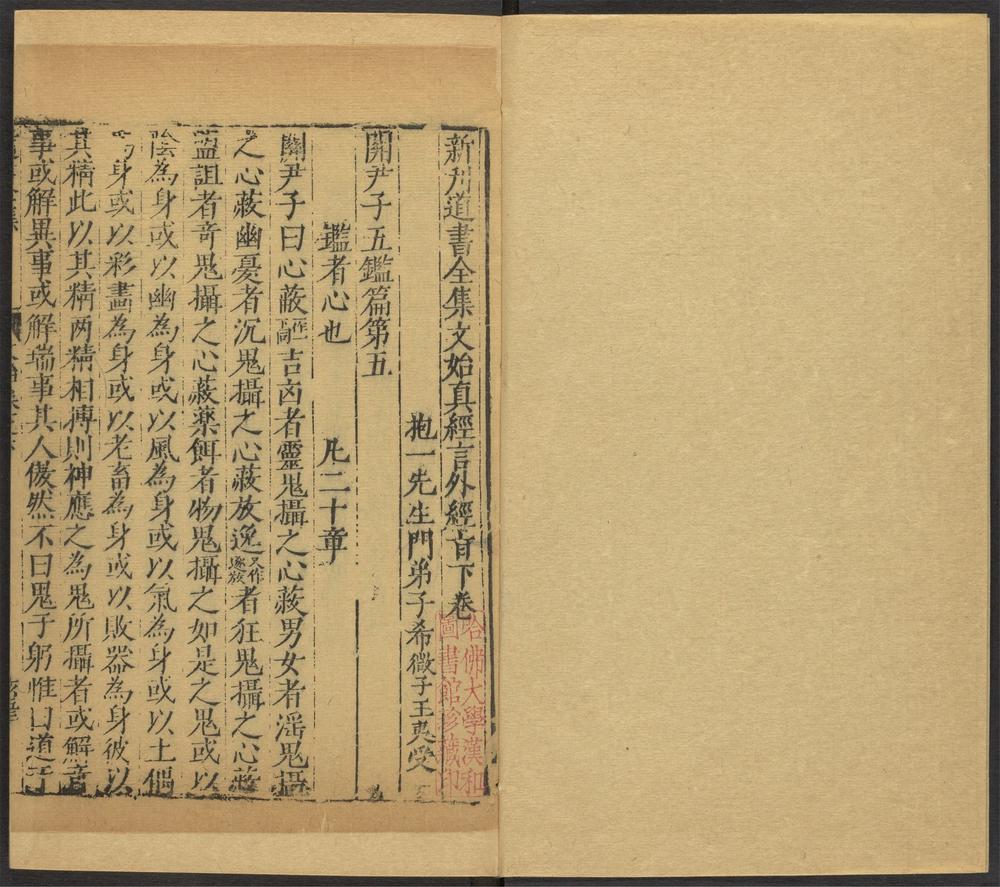 新刋道書全集文始真經言外經旨下卷
抱一先生門弟子希微子王夷受
關尹子五鑑篇第五
鑑者心也 凡二十章
關尹子曰心蔽吉凶者靈鬼攝之心蔽男女者滛鬼攝
之心蔽幽憂者沉鬼攝之心蔽放逸又作逐放者狂鬼攝之心蔽
盟詛者奇鬼攝之心蔽藥餌者物鬼攝之如是之鬼或以
陰為身或以幽為身或以風為身或以氣為身或以土偶
為身或以彩畫為身或以老畜為身或以敗器為身彼以
其精此以其精两精相搏則神應之為鬼所攝者或解竒
事或解異事或解瑞事其人傲然不曰鬼于躬惟曰道于
哈佛大學漢和
圖書館珍藏印